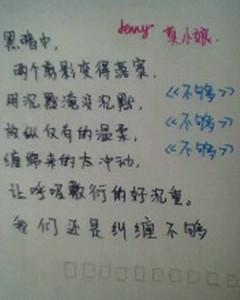 Jenny 莫小娘.
黑暗中,
两个剪影变得落寞,
用沉默淹没沉默, 《不够》
放纵仅有的温柔, 《不够》
缠绵来的太冲动, 《不够》
让呼吸敷衍的好沉重。
我们还是纠缠不够